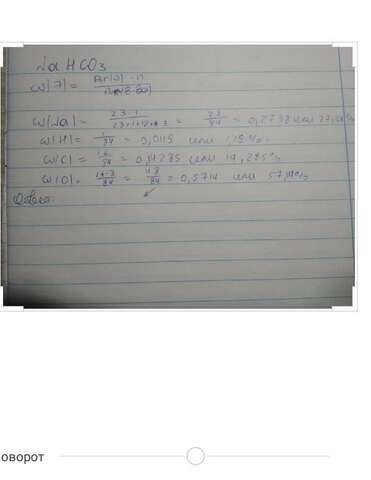 NaHCO3
w(Э) = Ar(Э) · n
w(Na) = 23·1 = 23/84 = 0,2738 или 27,38%
w(H) = 1/84 = 0,0119 или 1,19%
w(C) = 12/84 = 0,14285 или 14,285%
w(O) = 16·3/84 = 48/84 = 0,5714 или 57,14%
Ответ:
оворот